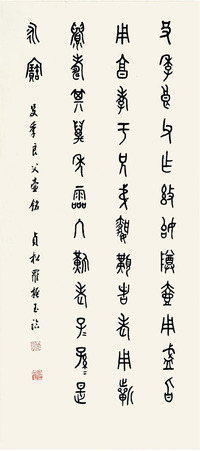 殳季良父乍姒尊壺用盛旨
用享孝于兄弟婚媾者老用祈
眉壽其萬年霝冬難老子＝孫＝是
永寶
殳季良父壺銘 貞松羅振玉臨